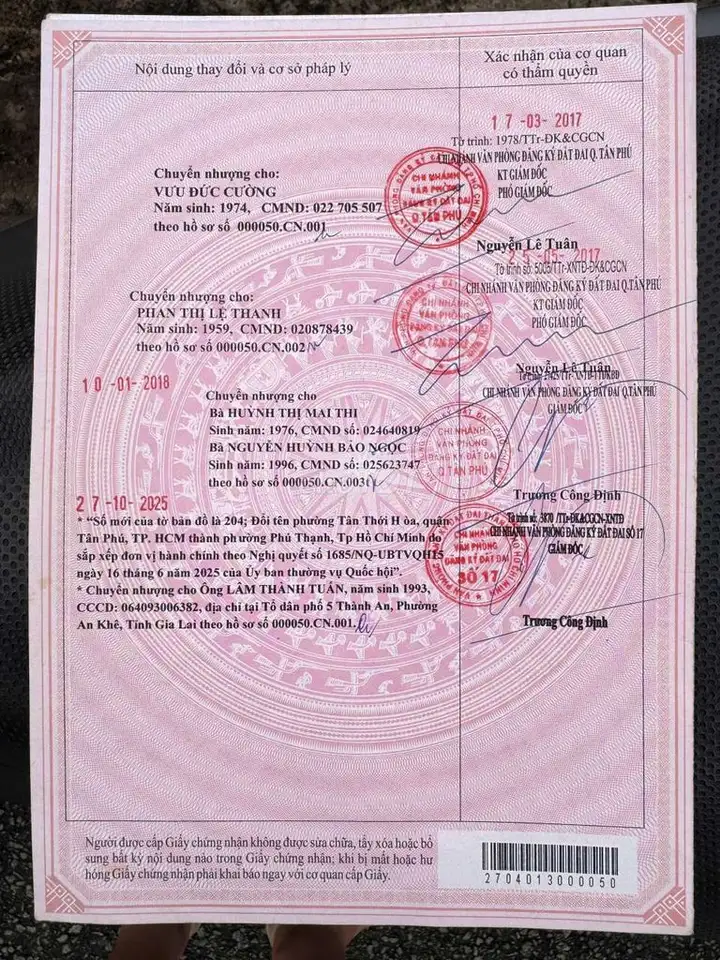 Nội dung thay đổi và cơ sở pháp lý
Xác nhận của cơ quan
có thẩm quyền
17-03-2017
Tờ trình: 1978/TTr-ĐK&CGCN
CHI NHÁNH VĂN PHÒNG ĐĂNG KÝ ĐẤT ĐAI Q. TÂN PHÚ
KT GIÁM ĐỐC
PHÓ GIÁM ĐỐC
Chuyển nhượng cho:
VƯU ĐỨC CƯỜNG
Năm sinh: 1974, CMND: 022 705 507
theo hồ sơ số 000050.CN.001
CHI NHÁNH
VĂN PHÒNG
ĐĂNG KÝ ĐẤT ĐAI
Q.TÂN PHÚ
Nguyễn Lê Tuân
25-05-2017
Tờ trình số: 5005/TTr-XNTĐ-ĐK&CGCN
CHI NHÁNH VĂN PHÒNG ĐĂNG KÝ ĐẤT ĐAI Q.TÂN PHÚ
KT GIÁM ĐỐC
PHÓ GIÁM ĐỐC
Chuyển nhượng cho:
PHAN THỊ LỆ THANH
Năm sinh: 1959, CMND: 020878439
theo hồ sơ số 000050.CN.002
CHI NHÁNH
VĂN PHÒNG
Nguyễn Lê Tuân
10-01-2018
CHI NHÁNH VĂN PHÒNG ĐĂNG KÝ ĐẤT ĐAI Q.TÂN PHÚ
GIÁM ĐỐC
Chuyển nhượng cho
Bà HUỲNH THỊ MAI THI
Sinh năm: 1976, CMND số: 024640819
Bà NGUYỄN HUỲNH BẢO NGỌC
Sinh năm: 1996, CMND số: 025623747
theo hồ sơ số 000050.CN.003
CHI NHÁNH
VĂN PHÒNG
ĐĂNG KÝ ĐẤT ĐAI
Q.TÂN PHÚ
Trương Công Định
27-10-2025
Tờ trình số: 3870 /TTr-ĐK&CGCN-XNTĐ
CHI NHÁNH VĂN PHÒNG ĐĂNG KÝ ĐẤT ĐAI SỐ 17
GIÁM ĐỐC
* “Số mới của tờ bản đồ là 204; Đổi tên phường Tân Thới H òa, quận
Tân Phú, TP. HCM thành phường Phú Thạnh, Tp Hồ Chí Minh do
sắp xếp đơn vị hành chính theo Nghị quyết số 1685/NQ-UBTVQH15
ngày 16 tháng 6 năm 2025 của Ủy ban thường vụ Quốc hội”.
* Chuyển nhượng cho Ông LÂM THÀNH TUẤN, năm sinh 1993,
CCCD: 064093006382, địa chỉ tại Tổ dân phố 5 Thành An, Phường
An Khê, Tỉnh Gia Lai theo hồ sơ số 000050.CN.001.
CHI NHÁNH
VĂN PHÒNG
ĐĂNG KÝ ĐẤT ĐAI
SỐ 17
Trương Công Định
Người được cấp Giấy chứng nhận không được sửa chữa, tẩy xóa hoặc bổ
sung bất kỳ nội dung nào trong Giấy chứng nhận; khi bị mất hoặc hư
hỏng Giấy chứng nhận phải khai báo ngay với cơ quan cấp Giấy.
2704013000050